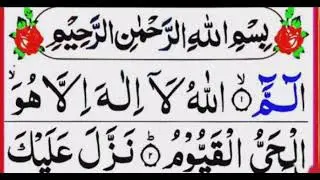 بِسْمِ اللهِ الرَّحْمٰنِ الرَّحِيْمِ
الٓمّٓ ۙ﴿۱﴾ اللهُ لَاۤ اِلٰهَ اِلَّا هُوَ ۙ
الْحَيُّ الْقَيُّوْمُ ؕ﴿۲﴾ نَزَّلَ عَلَيْكَ